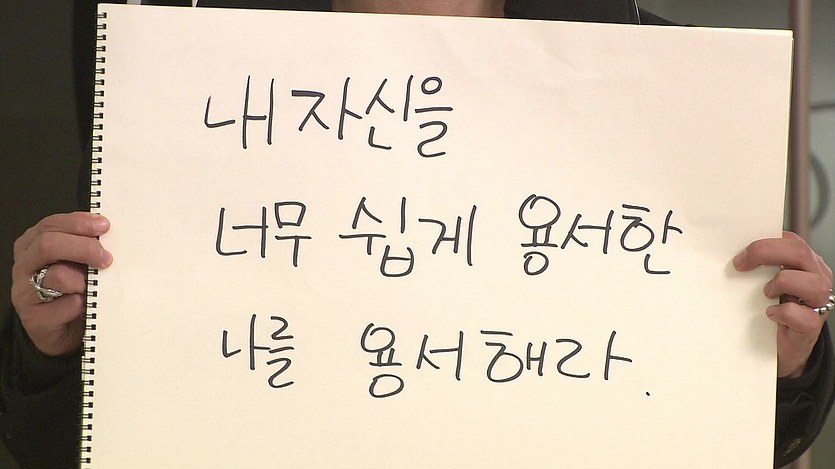 내 자신을
너무 쉽게 용서한
나를 용서해라.